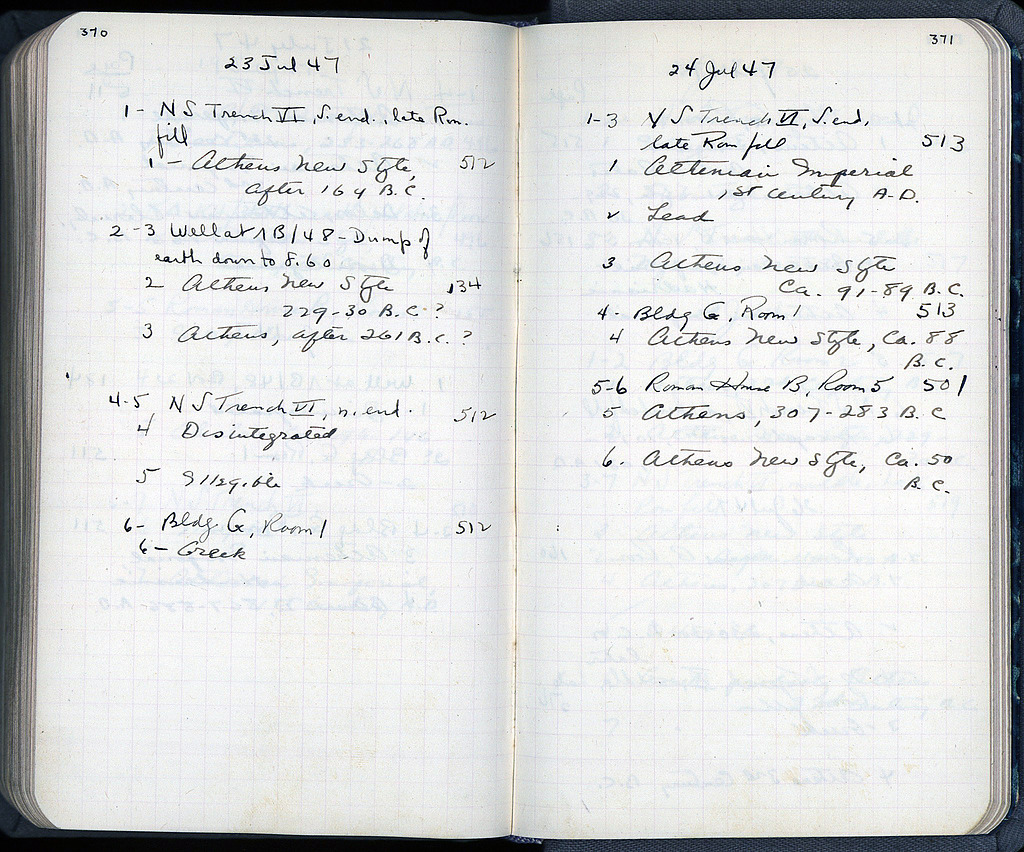 370
23 Jul 47
1- NS Trench VI, S. end., late Rom.
fill
1- Athens New Style, 512
after 164 B.C.
2-3 Well at AB/48 - Dump of
earth down to 8.60
2 Athens New Style 134
229-30 B.C.?
3 Athens, after 261 B.C.?
4-5, NS Trench VI, n. end. 512
4 Disintegrated
5 Illegible
6- Bldg G, Room 1 512
6- Greek
371
24 Jul 47
1-3 NS Trench VI, S. end,
late Rom fill 513
1 Athenian Imperial
1st century A.D.
2 Lead
3 Athens New Style
Ca. 91-89 B.C.
4- Bldg G, Room 1 513
4 Athens New Style, Ca. 88
B.C.
5-6 Roman House B, Room 5 501
5 Athens, 307-283 B.C
6. Athens New Style, Ca. 50
B.C.